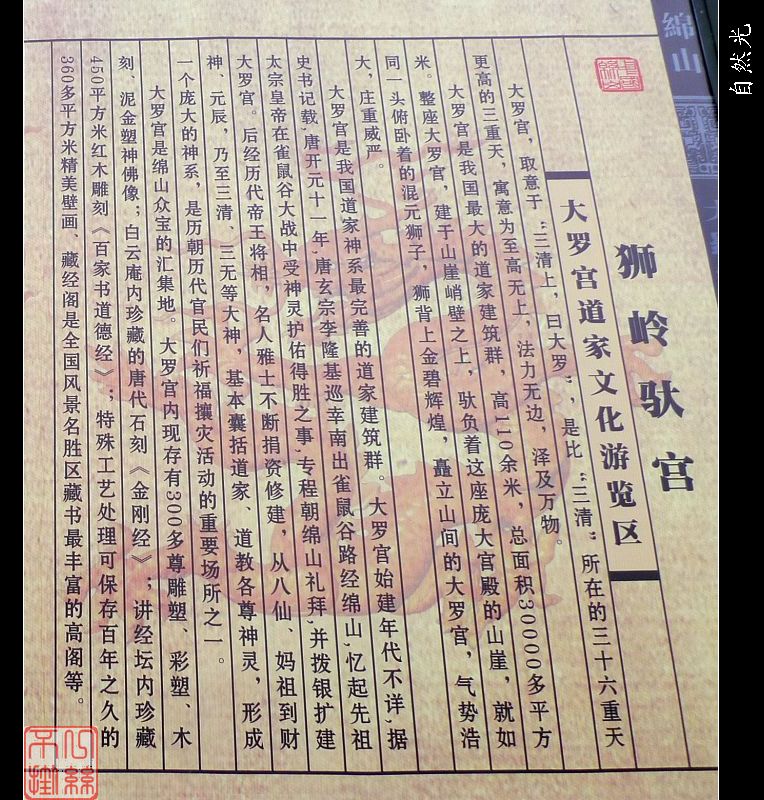 狮岭驮宫
大罗宫道家文化游览区
大罗宫，取意于“三清上，曰大罗”，是比“三清”所在的三十六重天
更高的三重天，寓意为至高无上，法力无边，泽及万物。
大罗宫是我国最大的道家建筑群，高110余米，总面积30000多平方
米。整座大罗宫，建于山崖峭壁之上，驮负着这座庞大宫殿的山崖，就如
同一头俯卧着的混元狮子，狮背上金碧辉煌，矗立山间的大罗宫，气势浩
大，庄重威严。
大罗宫是我国道家神系最完善的道家建筑群。大罗宫始建年代不详，据
史书记载，唐开元十一年，唐玄宗李隆基巡幸南出雀鼠谷路经绵山，忆起先祖
太宗皇帝在雀鼠谷大战中受神灵护佑得胜之事，专程朝绵山礼拜，并拨银扩建
大罗宫。后经历代帝王将相，名人雅士不断捐资修建，从八仙、妈祖到财
神、元辰，乃至三清、三无等大神，基本囊括道家、道教各尊神灵，形成
一个庞大的神系，是历朝历代官民们祈福攘灾活动的重要场所之一。
大罗宫是绵山众宝的汇集地。大罗宫内现存有300多尊雕塑、彩塑、木
刻、泥金塑神佛像；白云庵内珍藏的唐代石刻《金刚经》；讲经坛内珍藏
450平方米红木雕刻《百家书道德经》；特殊工艺处理可保存百年之久的
360多平方米精美壁画、藏经阁是全国风景名胜区藏书最丰富的高阁等。
綿山
自然光